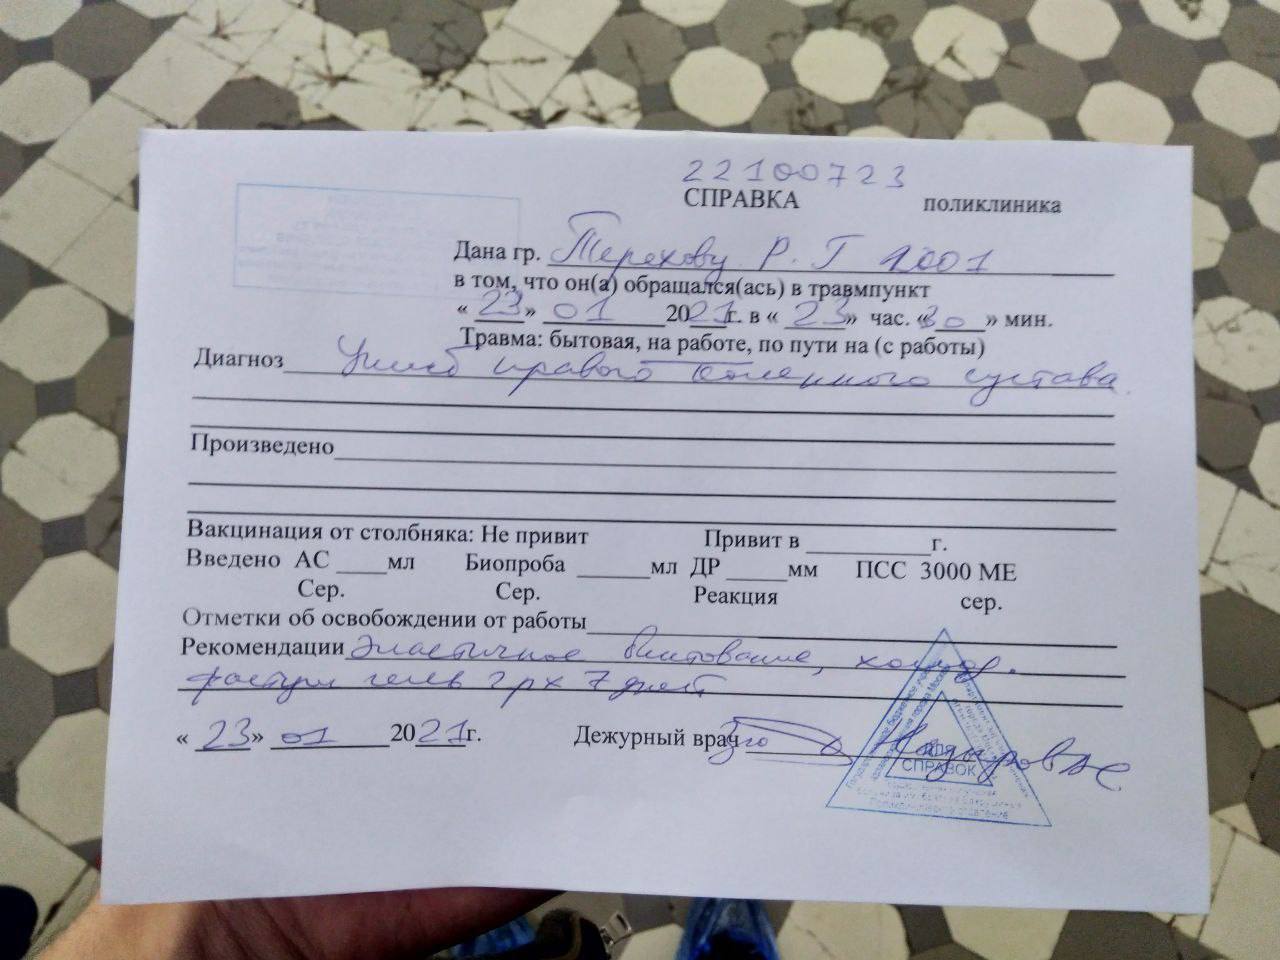 22100723
СПРАВКА поликлиника
Дана гр. Терехову Р. Г 2001
в том, что он(а) обращался(ась) в травмпункт
« 23 » 01 2021г. в « 23 » час. «30» мин.
Травма: бытовая, на работе, по пути на (с работы)
Диагноз Ушиб правого коленного сустава.
Произведено
Вакцинация от столбняка: Не привит Привит в г.
Введено АС мл Биопроба мл ДР мм ПСС 3000 МЕ
Сер. Сер. Реакция сер.
Отметки об освобождении от работы
Рекомендации Эластичное бинтование, холод.
фастум гель 2 р х 7 дней
« 23 » 01 2021г. Дежурный врач
ДЛЯ
СПРАВОК